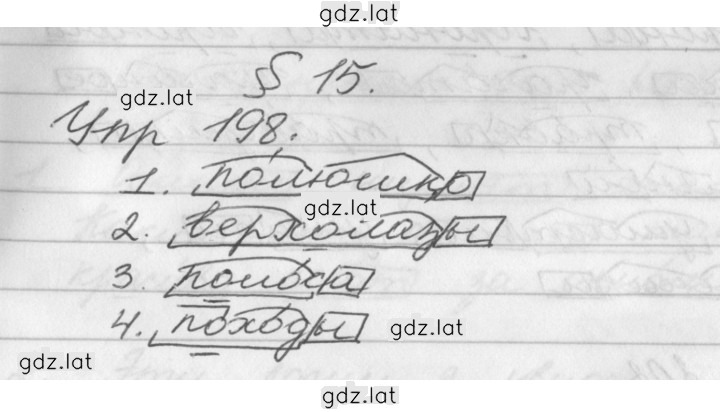 gdz.lat
§ 15.
gdz.lat
Упр 198.
1. полюшко
gdz.lat
2. верхолазы
3. полоса
4. походы
gdz.lat
gdz.lat
gdz.lat